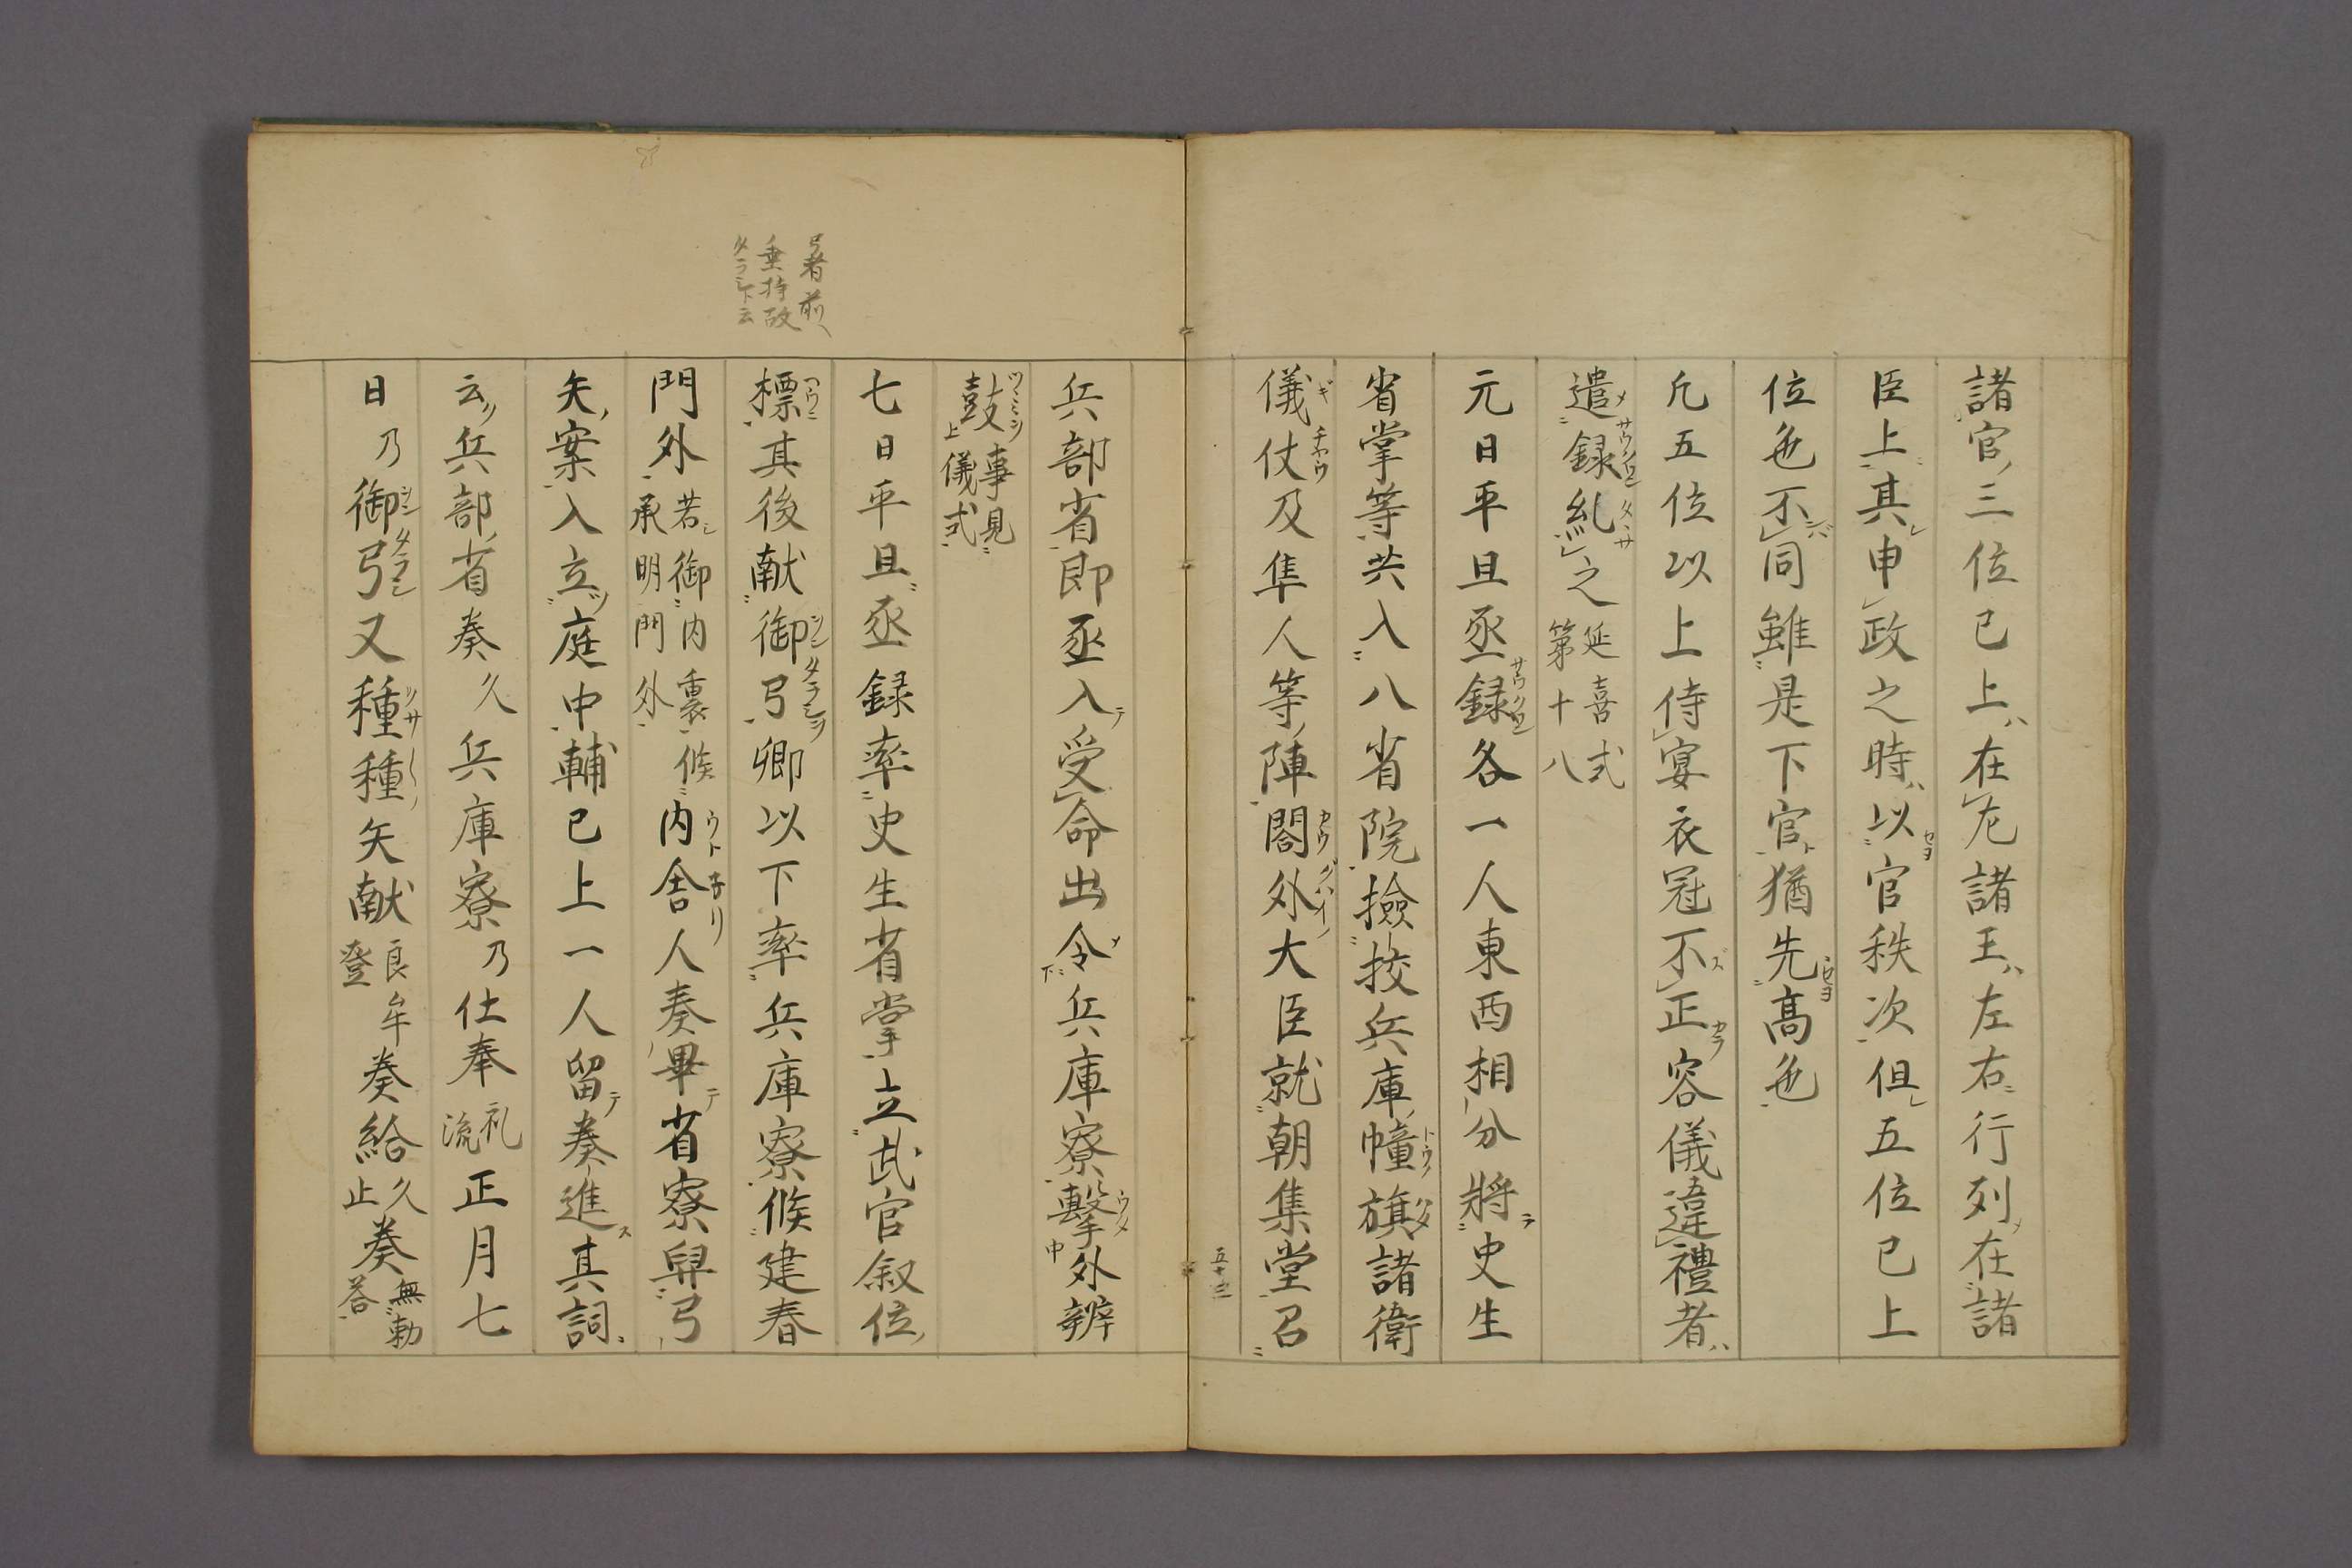 諸官三位已上在左諸王左右行列在諸
臣上其申政之時以官秩次但五位已上
位色不同雖是下官猶先高色
凡五位以上侍宴衣冠不正容儀違禮者
遣録糺之延喜式第十八
元日平旦丞録各一人東西相分將史生
省掌等共入八省院撿挍兵庫幢旗諸衛
儀仗及隼人等陣閤外大臣就朝集堂召
兵部省即丞入受命出令兵庫寮擊外辨
鼓事見上儀式
七日平旦丞録率史生省掌立武官叙位
標其後献御弓卿以下率兵庫寮候建春
門外若御内裏候承明門外内舍人奏畢省寮舁弓
矢案入立庭中輔已上一人留奏進其詞
云兵部省奏久兵庫寮乃仕奉礼流正月七
日乃御弓又種種矢献良牟登奏給久止奏無勅答